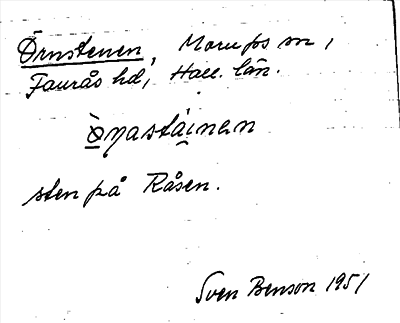 Örnstenen, Morups sn,
Faurås hd, Hall. län.
sten på Råsen.
Sven Benson 1951